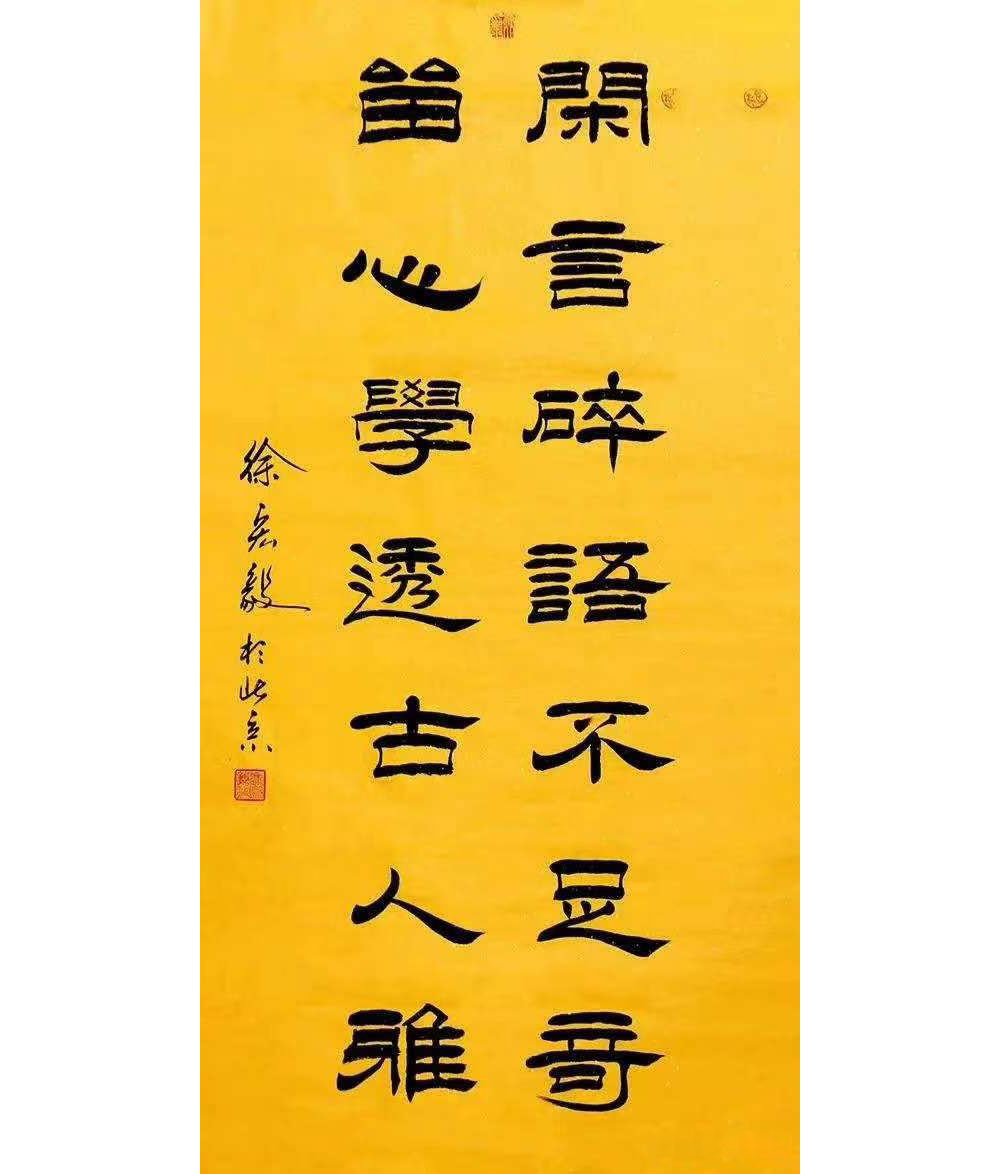 閑言碎語不足竒
留心學透古人雅
徐宏毅於北京